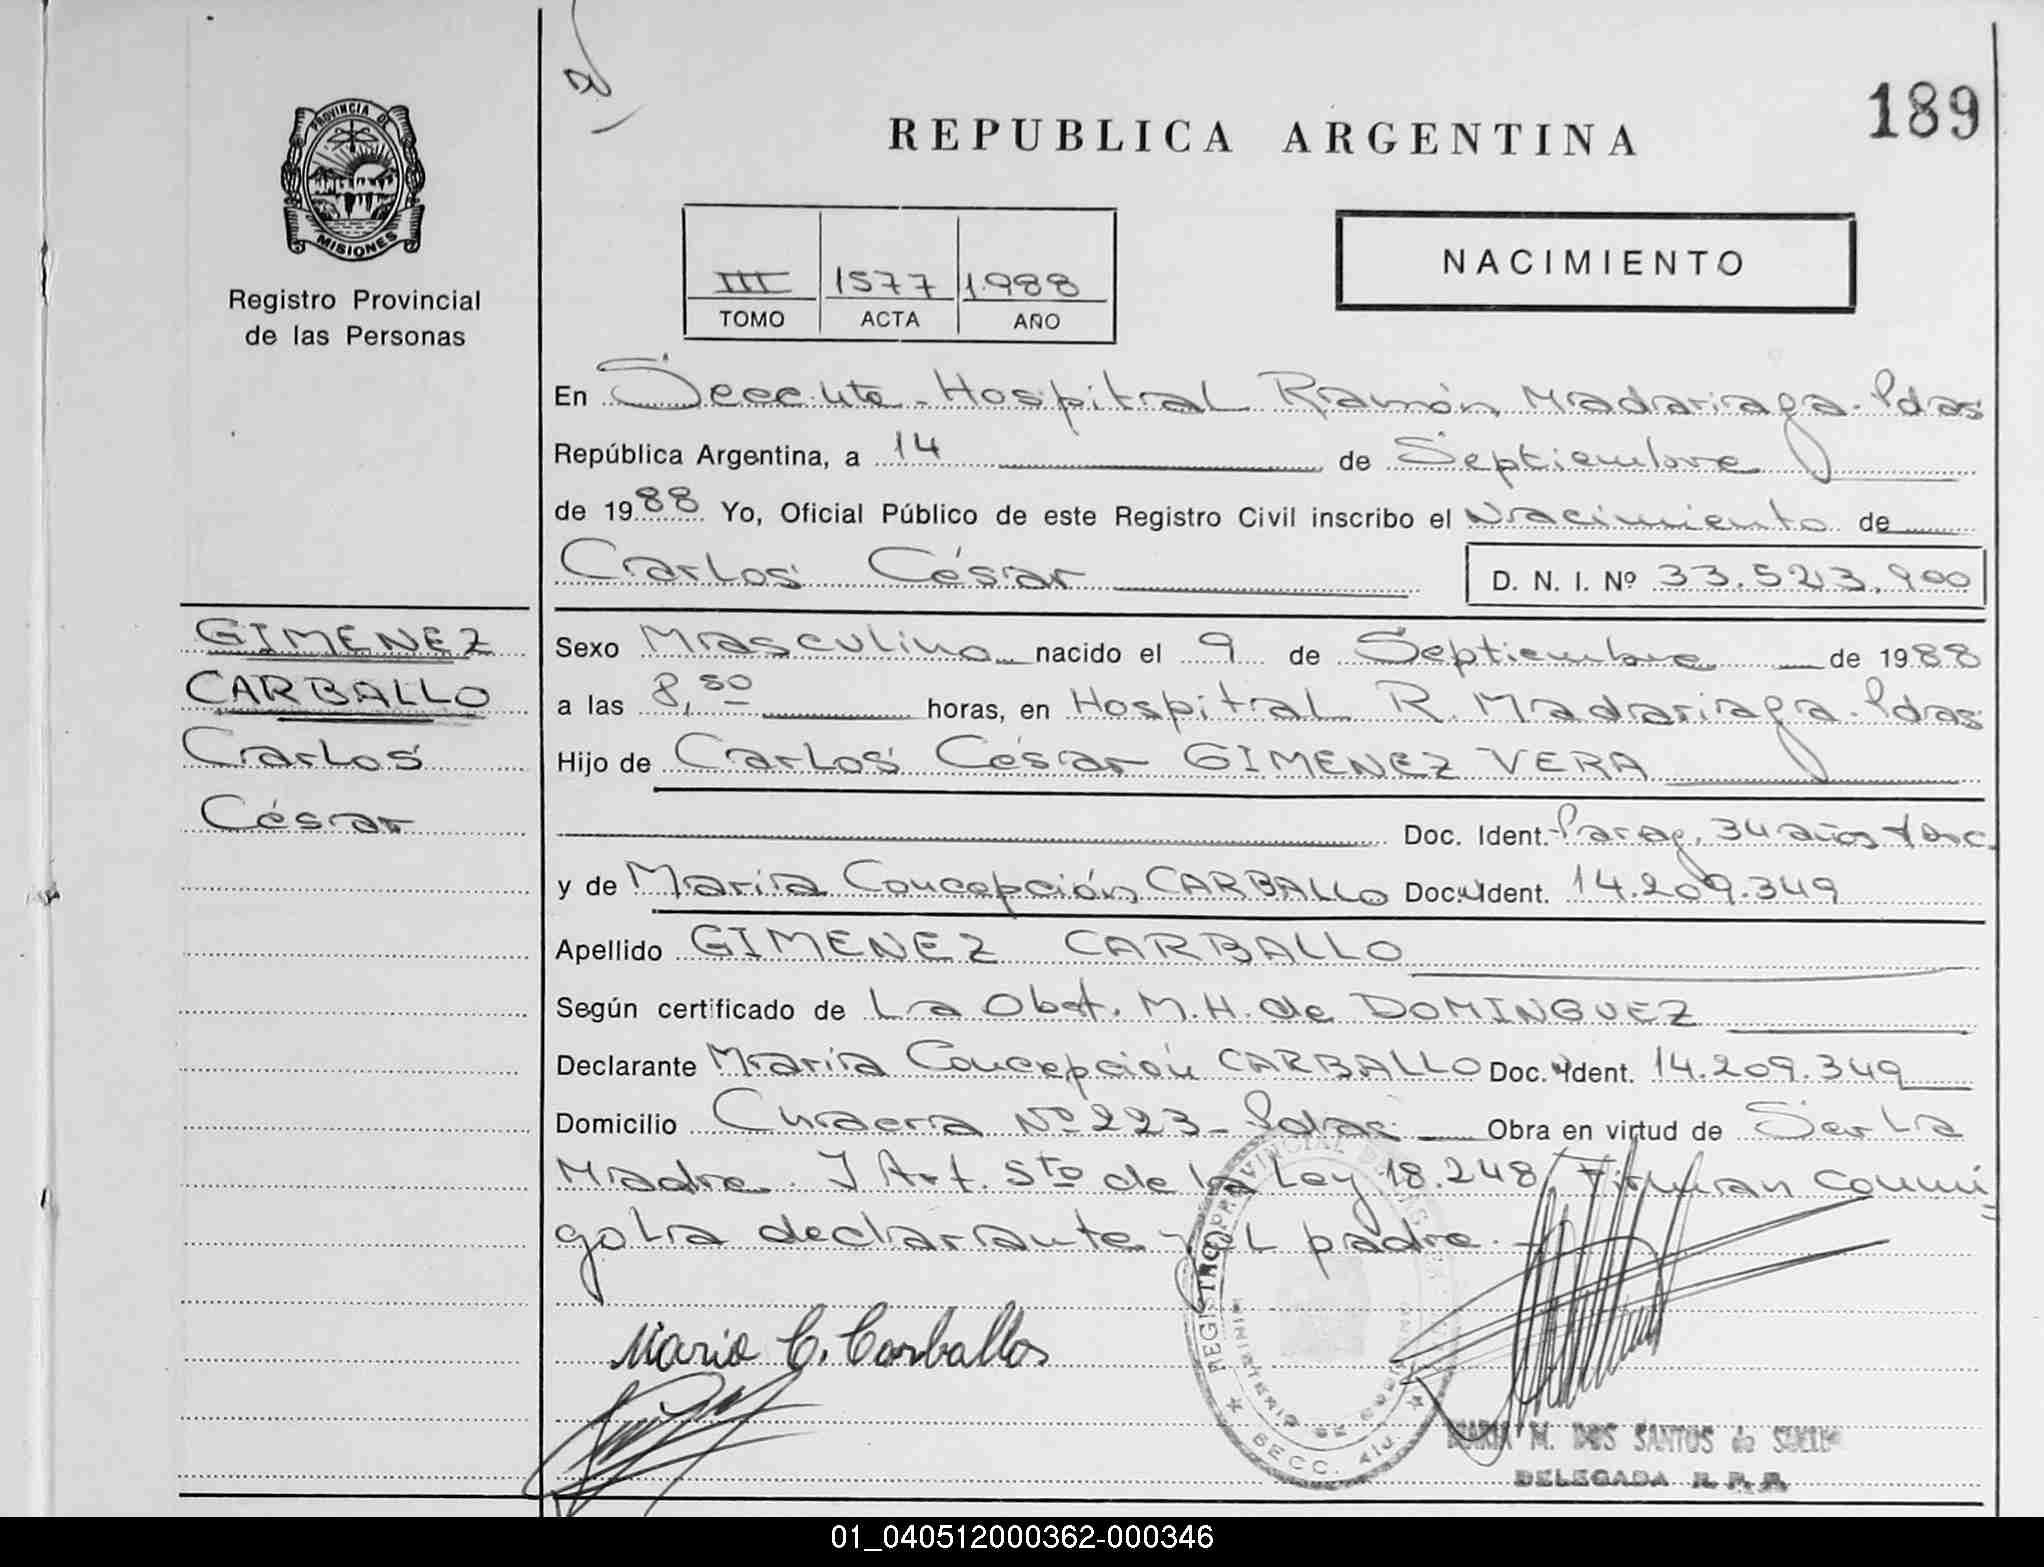 189
PROVINCIA DE
MISIONES
Registro Provincial
de las Personas
REPUBLICA ARGENTINA
III 1577 1988
TOMO ACTA AÑO
NACIMIENTO
En Secc. 4ta - Hospital Ramón Madariaga. Pdas
República Argentina, a 14 de Septiembre
de 1988 Yo, Oficial Público de este Registro Civil inscribo el Nacimiento de
Carlos César
D. N. I. Nº 33.523.900
GIMENEZ
CARBALLO
Carlos
César
Sexo Masculino nacido el 9 de Septiembre de 1988
a las 8,50 horas, en Hospital R. Madariaga. Pdas
Hijo de Carlos César GIMENEZ VERA
Doc. Ident. Parag. 34 años
y de María Concepción CARBALLO Doc. Ident. 14.209.349
Apellido GIMENEZ CARBALLO
Según certificado de La Obst. M.H. de DOMINGUEZ
Declarante María Concepción CARBALLO Doc. Ident. 14.209.349
Domicilio Nº 223 - Pdas Obra en virtud de Ser La
Madre. Y Art. 5to de la Ley 18.248, Firman conmi=
go la declarante y el padre. -
Maria C. Carballo
REGISTRO PROVINCIAL DE LAS PERSONAS
MINISTERIO DE GOBIERNO
SECC. 4ta.
MARIA M. DOS SANTOS de
DELEGADA R. P. P.
01_040512000362-000346